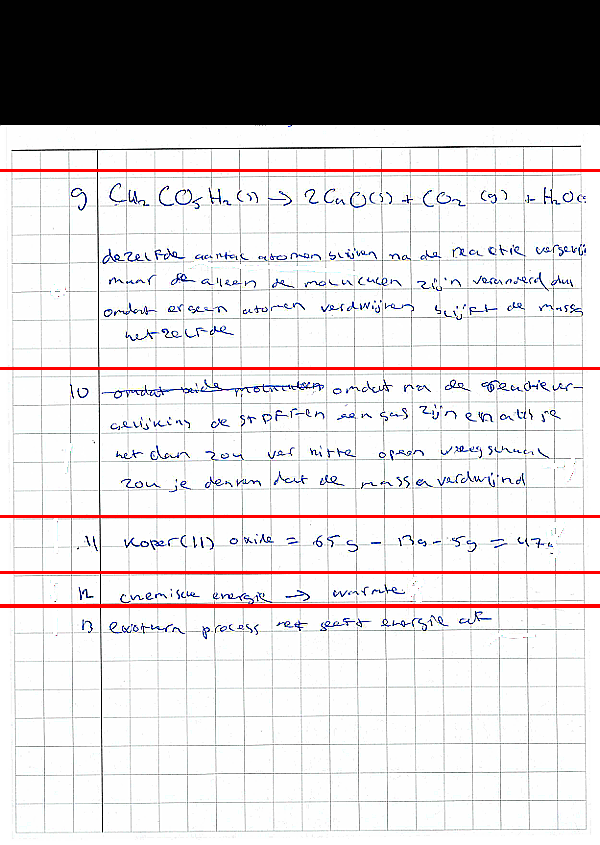 9 Cu₂CO₅H₂(s) → 2CuO(s) + CO₂ (g) + H₂O(
dezelfde aantal atomen blijven na de reactie
maar de alleen de zijn veranderd dus
omdat er geen atomen verdwijnen blijft de massa
het zelfde
10 omdat na de reactiever-
gelijking de stoffen een gas zijn en als je
het dan zou ver hitte op een weegschaal
zou je denken dat de massa verdwijnd
11 Koper(II) oxide = 65g - 13g - 5g = 47g
12 chemische energie → warmte
13 exotherm process het geeft energie af